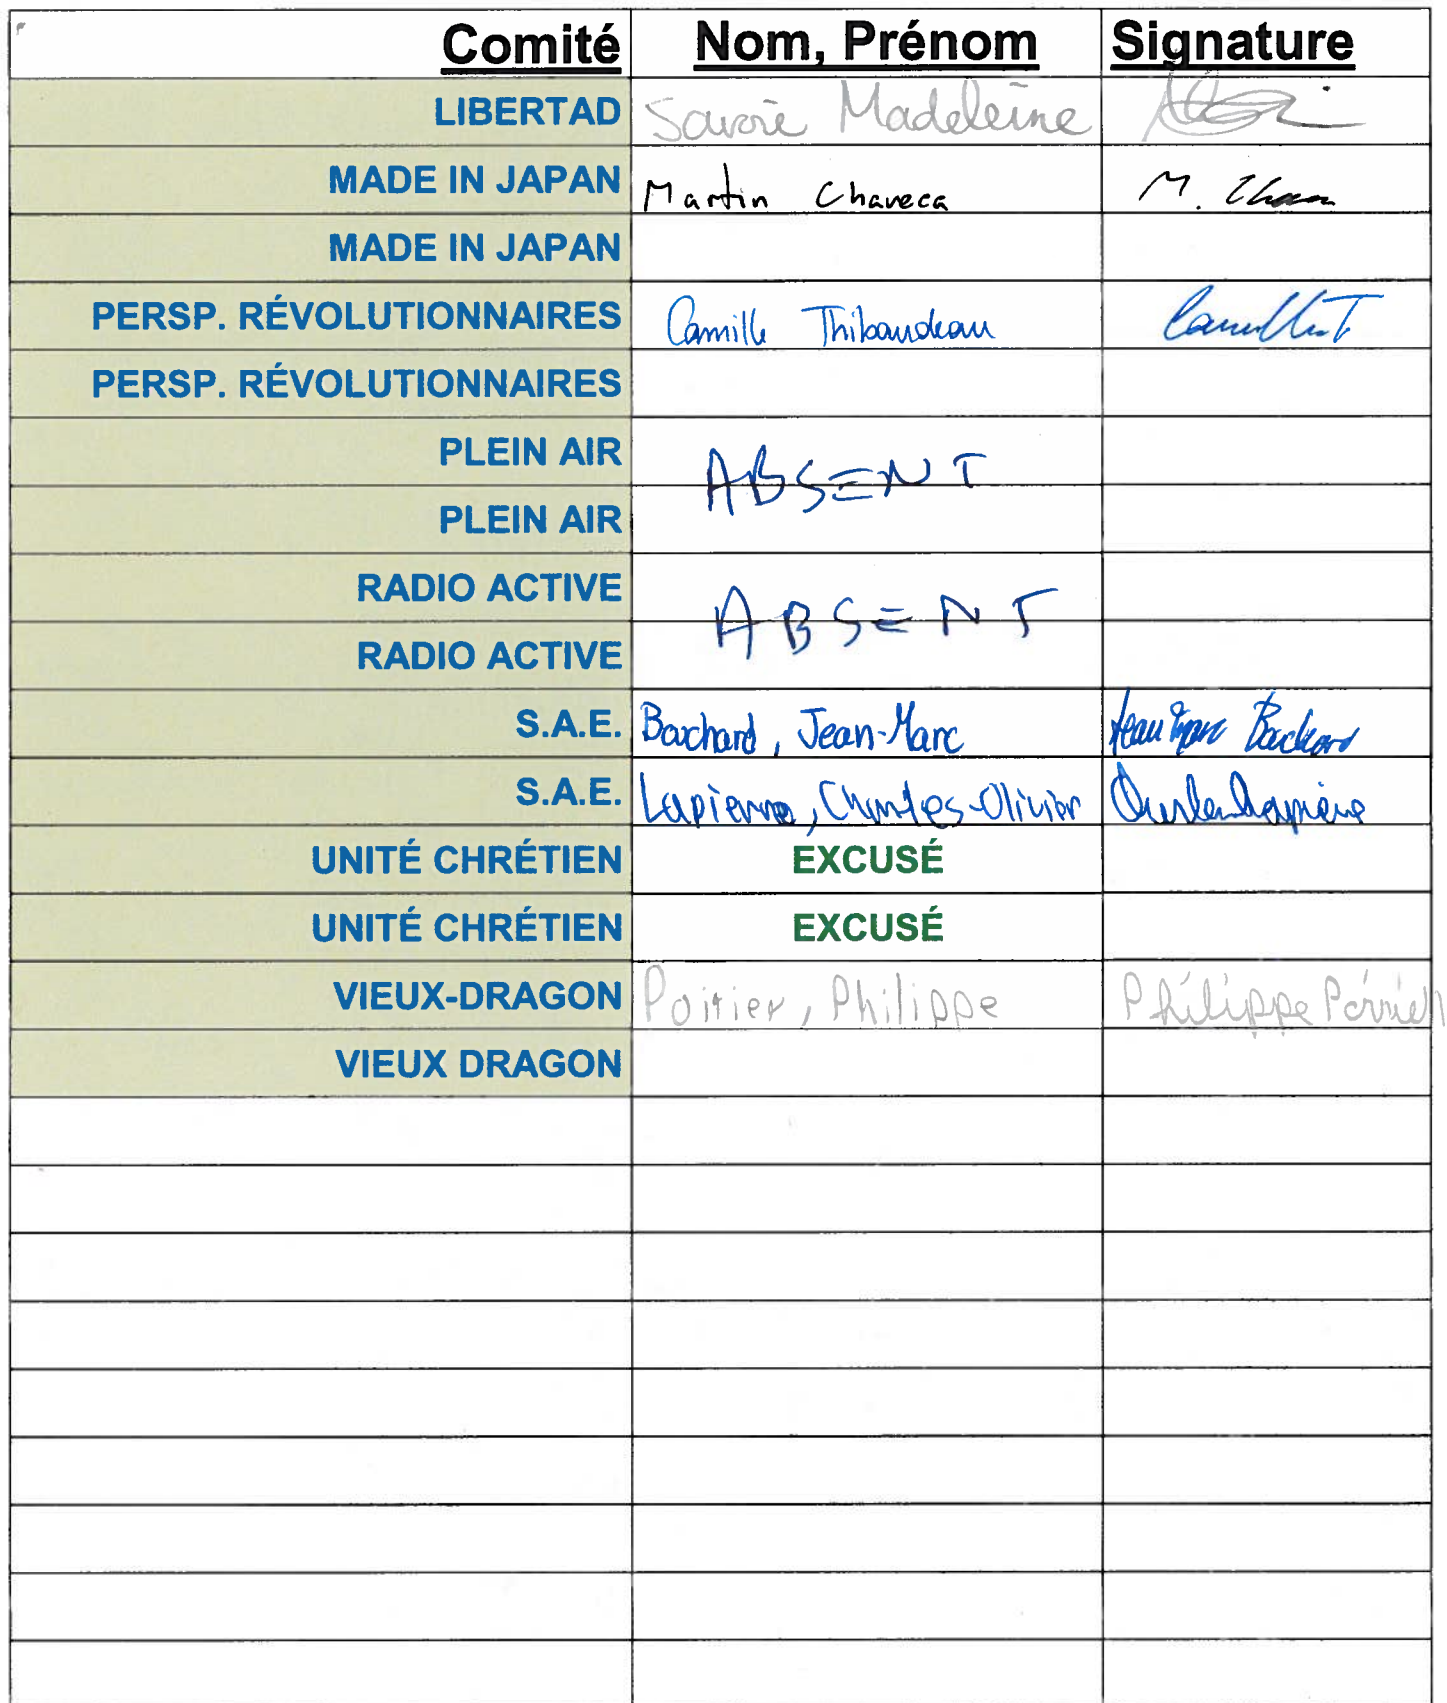 Comité Nom, Prénom Signature
LIBERTAD Savoie Madeleine
MADE IN JAPAN Martin Chaveca M.
MADE IN JAPAN
PERSP. RÉVOLUTIONNAIRES Camille Thibaudeau Camille T
PERSP. RÉVOLUTIONNAIRES
PLEIN AIR
ABSENT
PLEIN AIR
RADIO ACTIVE
ABSENT
RADIO ACTIVE
S.A.E. Bouchard, Jean-Marc Jean Marc Bouchard
S.A.E. Lapierre, Charles-Olivier
UNITÉ CHRÉTIEN EXCUSÉ
UNITÉ CHRÉTIEN EXCUSÉ
VIEUX-DRAGON Poirier, Philippe Philippe Poirier
VIEUX DRAGON